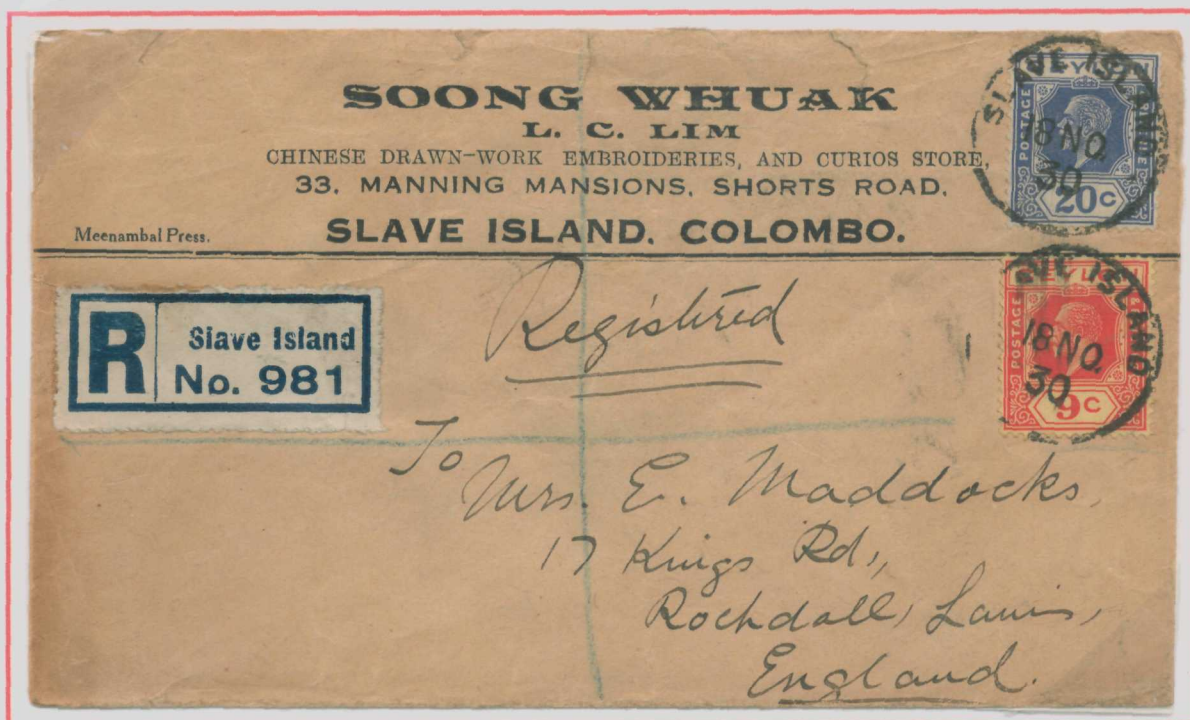 SOONG WHUAK
L. C. LIM
CHINESE DRAWN-WORK EMBROIDERIES, AND CURIOS STORE,
33, MANNING MANSIONS, SHORTS ROAD,
Meenambal Press.
SLAVE ISLAND, COLOMBO.
SLAVE ISLAND
18 NO
30
POSTAGE
20c
SLAVE ISLAND
18 NO
30
POSTAGE
9c
R
Slave Island
No. 981
Registered
To
Mrs. E. Maddocks,
17 Kings Rd,
Rochdall, 
England.